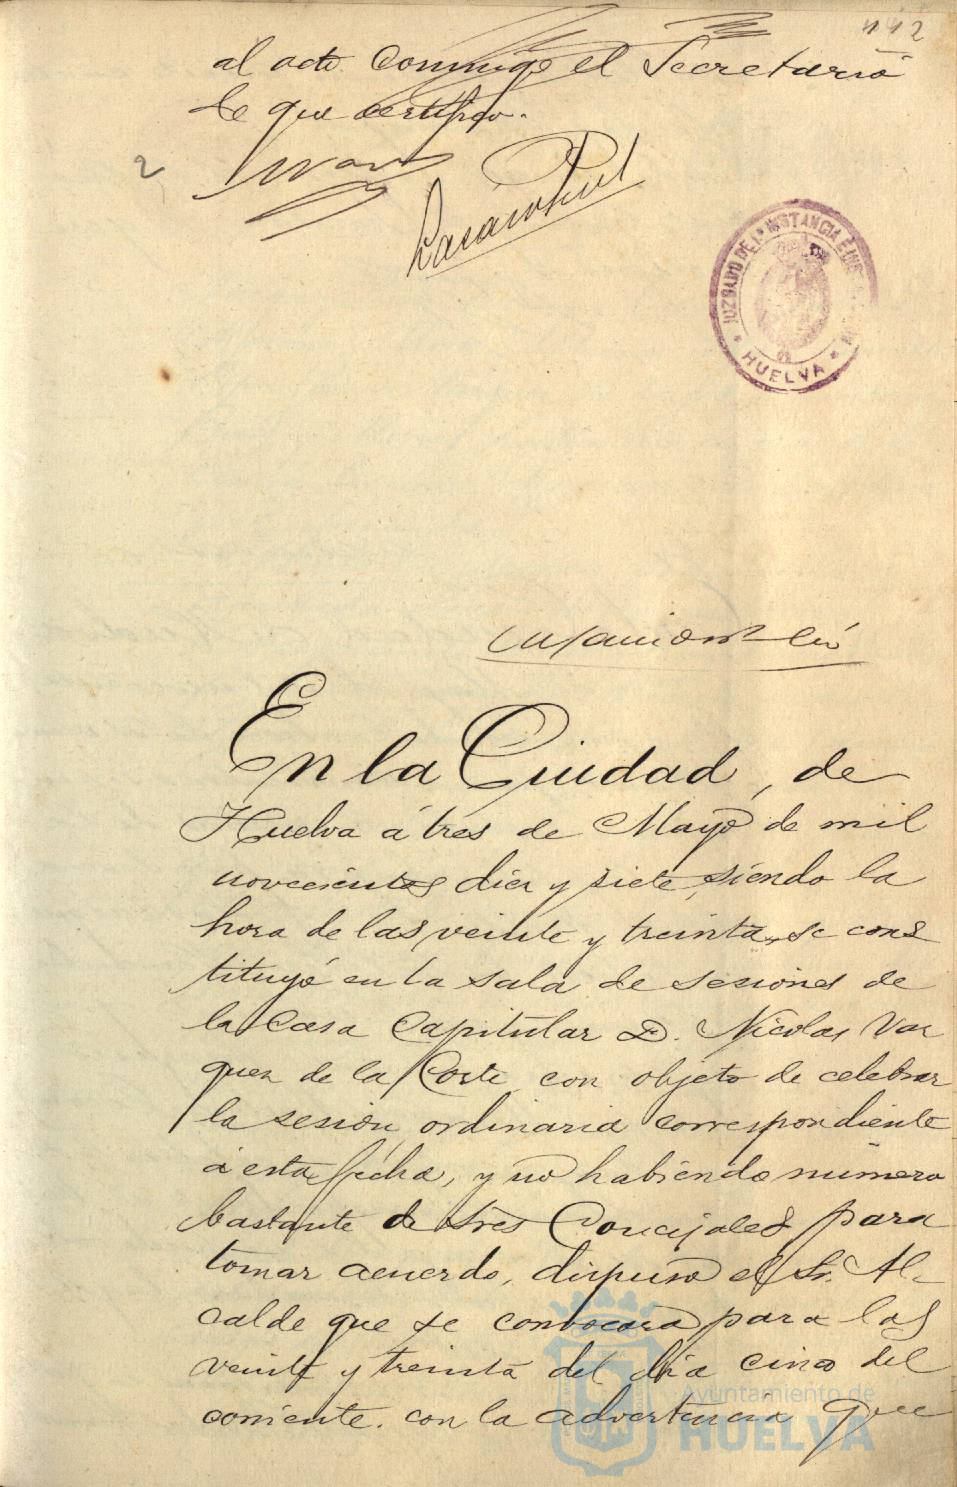 112
al acto conmigo el Secretario
de que certifico.
2
JUZGADO DE 1ª INSTANCIA É INS
HUELVA
En la Ciudad, de
Huelva á tres de Mayo de mil
novecientos diez y siete, siendo la
hora de las veinte y treinta, se cons
tituyó en la sala de sesiones de
la Casa Capitular D. Nicolas Vaz
quez de la Corte, con objeto de celebrar
la sesion ordinaria correspondiente
á esta fecha, y no habiendo número
bastante de Sres Concejales para
tomar acuerdo, dispuso el Sr. Al-
calde que se convocara para las
veinte y treinta del dia cinco del
corriente. con la advertencia que
Ayuntamiento de
HUELVA